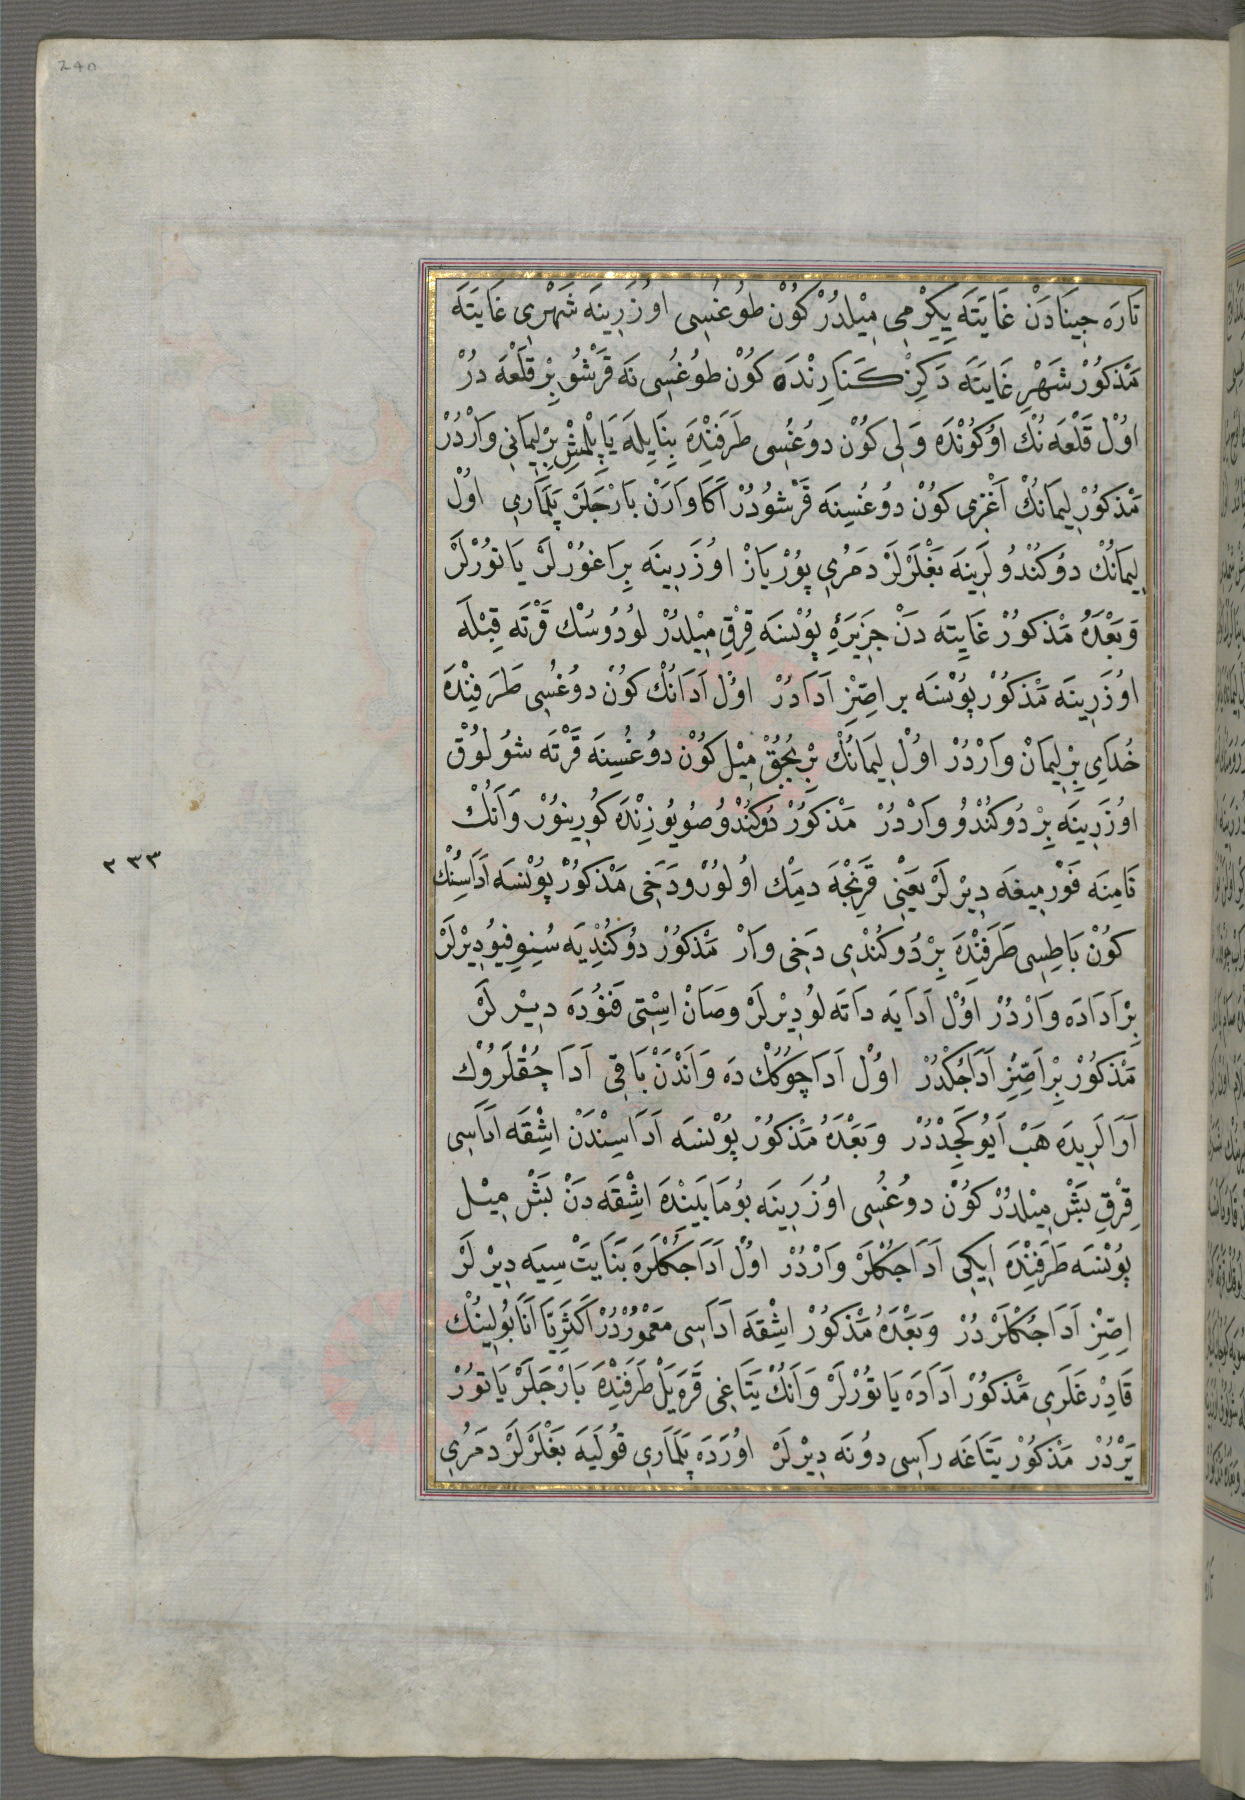 240
تَارَه جِينَادَنْ غَايَتَه يِكِرْمِی مِيْلدُرْ كُوْن طُوغُسِی اوُزَرِينَه شَهْرِی غَايَتَه
مَذْكُوْر شَهْرِ غَايَتَه دَكِزْ كَنَارِنْدَه كُوْن طُوغُسِی نَه قَرْشُو بِرْ قَلْعَه دُرْ
اوُل قَلْعَه نُك اوُكُونْدَه وَلِی كُوْن دوُغُسِی طَرَفِنْدَه بِنَا يِلَه يَاپِلْمِشْ بِرْ لِيمَانِی وَارْدُرْ
مَذْكُوْر لِيمَانُك اَغْزِی كُوْن دوُغُسِنَه قَرْشُودُرْ اَكَا وَارَنْ بَارْجَلَرْ پَلَمَارِی اوُل
لِيمَانُك دوُكُنْدُولَرِينَه بَغْلَرْلَرْ دَمُرِی پُوْريَازْ اوُزَرِينَه بِرَاغُوْرلَرْ يَاتُوْرلَرْ
وَبَعْدَهُ مَذْكُوْر غَايِتَه دَنْ جَزِيَرَهٴِ پُوْنْسَه قِرْقِ مِيْلدُرْ لُودُوسُك قَرْتَه قِبْلَه
اوُزَرِينَه مَذْكُوْر پُوْنْسَه بر اصِّزِ اَدَادُرْ اوُل اَدَانُك كُوْن دوُغُسِی طَرَفِنْدَه
خُدَایِ بِرْ لِيمَانْ وَارْدُرْ اوُل لِيمَانُك بِرْ بُچُقْ مِيْل كُوْن دوُغُسِنَه قَرْتَه شُولُوْق
اوُزَرِينَه بِرْ دُوكُنْدُو وَارْدُرْ مَذْكُوْر دُوكُنْدُو صُو يُوزِنْدَه كُورِينُوْر وَاَنُك
نَامِنَه فَوْرمِيغَه دِيْرلَرْ يَعْنِی قَرِنْجَه دِمَك اوُلُورْ وَدَخِی مَذْكُوْر پُوْنْسَه اَدَاسِنُك
كُوْن بَاطِسِی طَرَفِنْدَه بِرْ دُوكُنْدِی دَخِی وَارْ مَذْكُوْر دوُكُنْدِيَه سُنِوفِيُو دِيْرلَرْ
بِرْ اَدَادَه وَارْدُرْ اوُل اَدَايَه دَاتَه لُو دِيْرلَرْ وصَانْ اسِتِی فَنُوُدَه دِيْرلَرْ
مَذْكُوْر بِرْ اَصِّزِ اَدَاجُكْدُرْ اوُل اَدَاچُوكُك دَه وَاَنْدَنْ بَاقِی اَدَا جُقْلَرُوْك
اَرَالَرِيدَه هَبْ اَيُو كَچِدْدُرْ وَبَعْدَهُ مَذْكُوْر پُوْنْسَه اَدَاسِنْدَنْ اشِقَه اَدَاسِی
قِرْقِ بَشْ مِيْلدُرْ كُوْن دوُغُسِی اوُزَرِينَه بُومَابَيَنْدَه اشِقَه دَنْ بَشْ مِيْل
پُوْنْسَه طَرَفِنْدَه اِيكِی اَدَاجُكْلَرْ وَارْدُرْ اوُل اَدَاجُكْلَرَه بَنَايتْ سِيَه دِيْرلَرْ
اصِّزِ اَدَاجُكْلَرْدُرْ وَبَعْدَهُ مَذْكُوْر اشِقَه اَدَاسِی مَعْمُوْرْدُرْ اَكْثَرِيَّا اَنَابُولِينُك
قَادِرْغَلَرِی مَذْكُوْر اَدَادَه يَاتُوْرلَرْ وَاَنُك يَتَاغِی قَرَه يَلْ طَرَفِنْدَه بَارْجَلَرْ يَاتُوْر
يَرْدُرْ مَذْكُوْر يَتَاغَه رَاسِی دوُنَه دِيْرلَرْ اوُرَدَه پَلَمَارِی قُولَيَه بَغْلَرْلَرْ دَمُرِی
٢٣٣